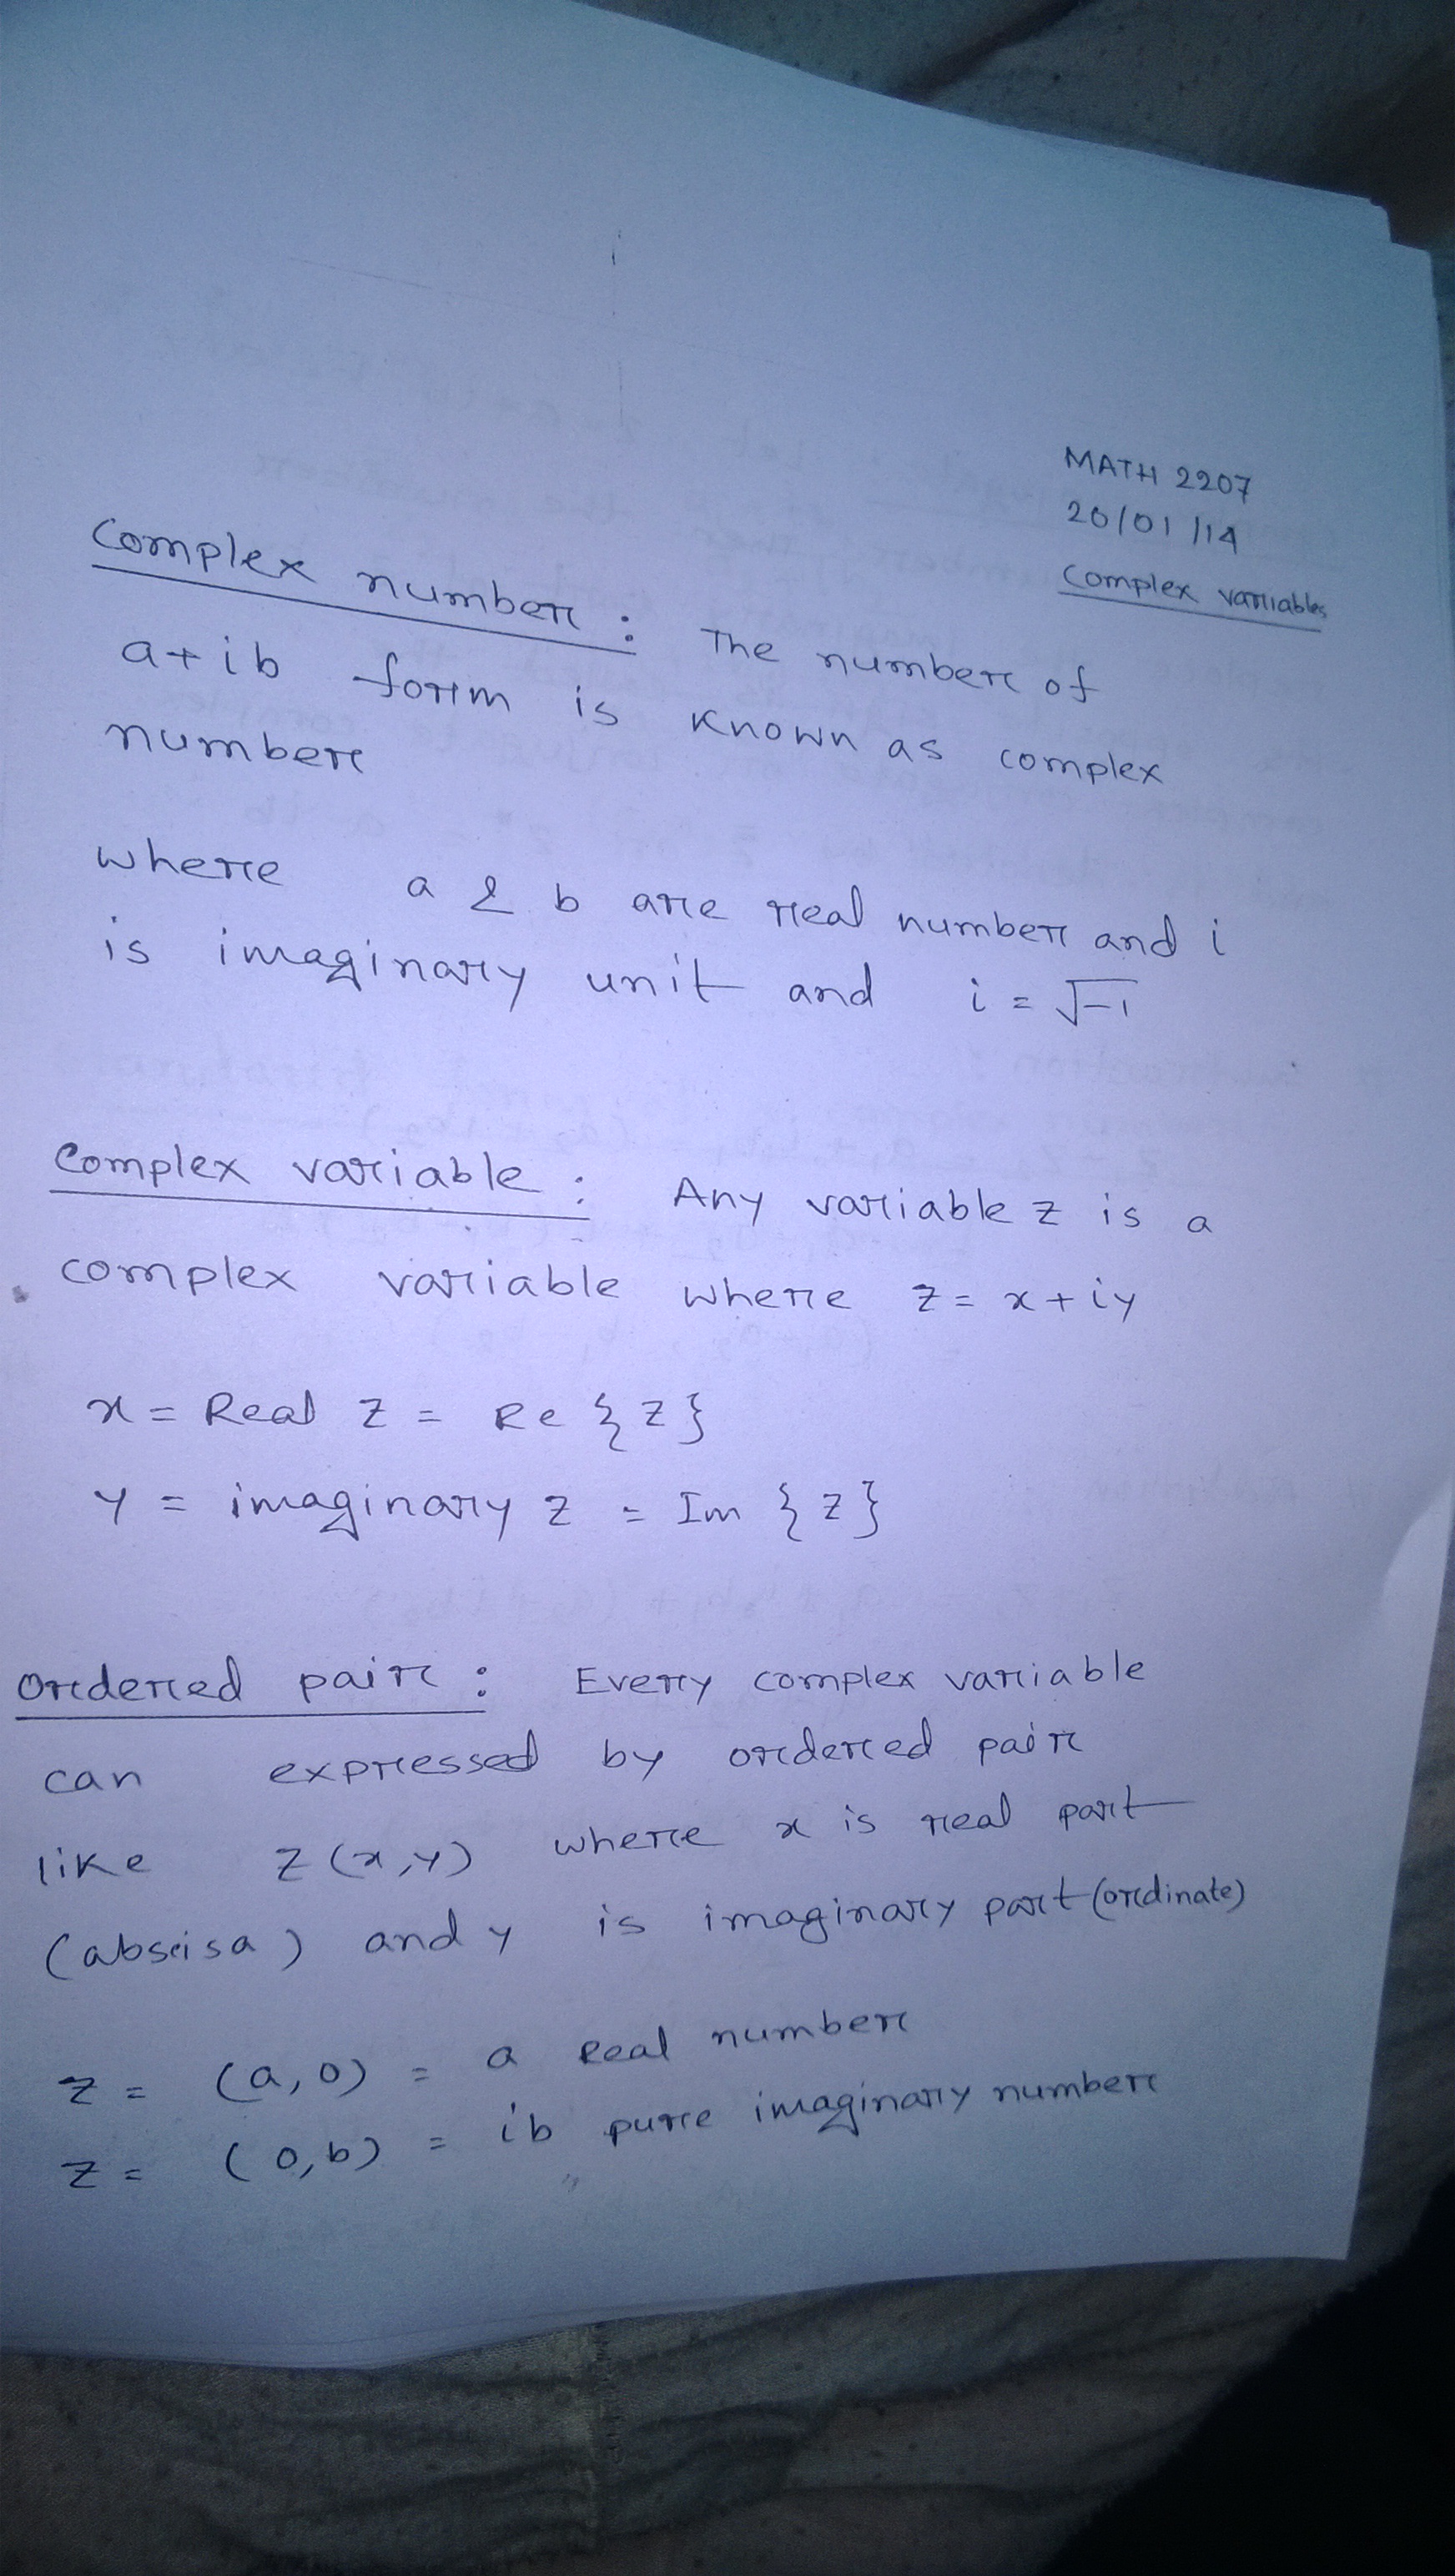 MATH 2207
20/01/14
Complex variables
Complex number : The number of
a+ib form is known as complex
number
where a & b are real number and i
is imaginary unit and i = √-1
Complex variable : Any variable z is a
complex variable where z = x+iy
x = Real z = Re {z}
y = imaginary z = Im {z}
Ordered pair : Every complex variable
can expressed by ordered pair
like z(x,y) where x is real part
(abscisa) and y is imaginary part (ordinate)
z = (a,0) = a Real number
z = (0,b) = ib pure imaginary number